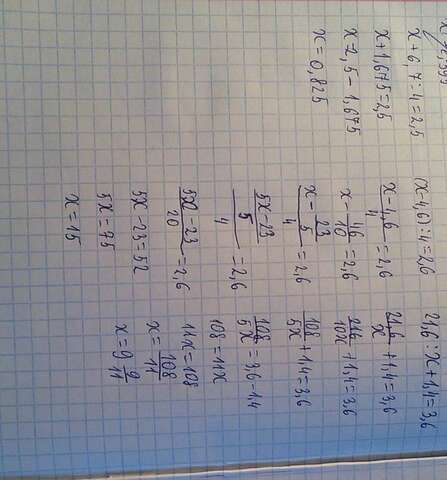 x+6,7:4=2,5
x+1,675=2,5
x=2,5-1,675
x=0,825
(x-4,6):4=2,6
(x-4,6)/4=2,6
(x-46/10)/4=2,6
(x-23/5)/4=2,6
((5x-23)/5)/4=2,6
(5x-23)/20=2,6
5x-23=52
5x=75
x=15
21,6:x+1,4=3,6
21,6/x+1,4=3,6
216/10x+1,4=3,6
108/5x+1,4=3,6
108/5x=3,6-1,4
108=11x
11x=108
x=108/11
x=9 9/11